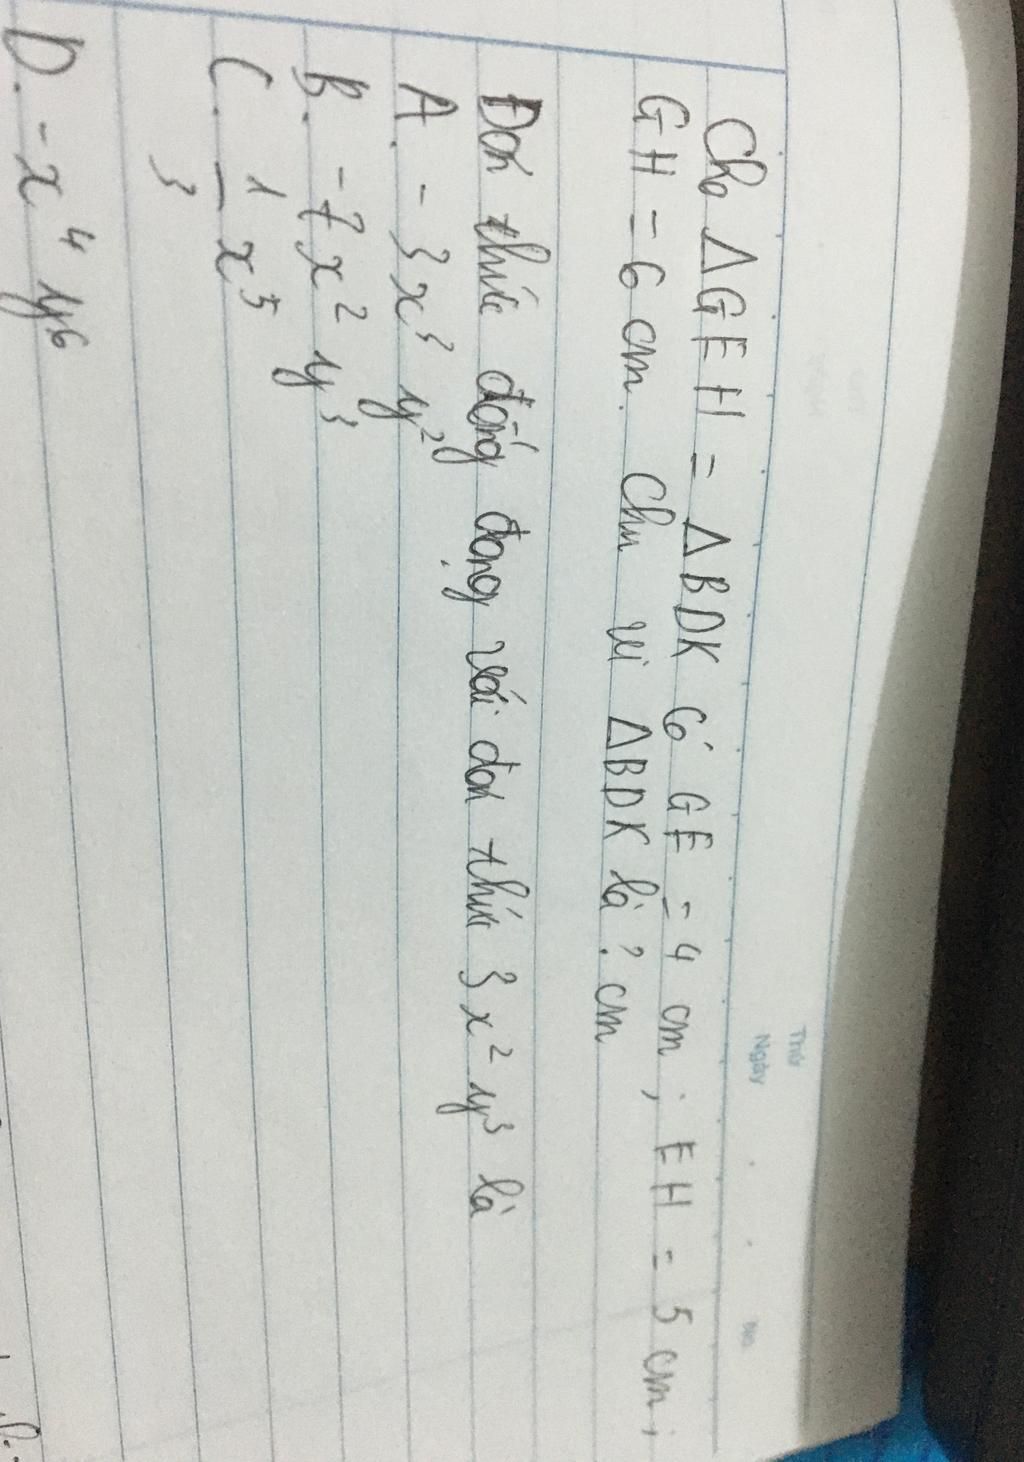 Thứ
Ngày
No
Cho ΔGEH = ΔBDK có GE = 4 cm ; EH = 5 cm ;
GH = 6 cm. Chu vi ΔBDK là ? cm
Đơn thức đồng dạng với đơn thức 3x²y³ là
A. -3x³y²
B. -7x²y³
C. 1/3 x⁵
D. -x⁴y⁶